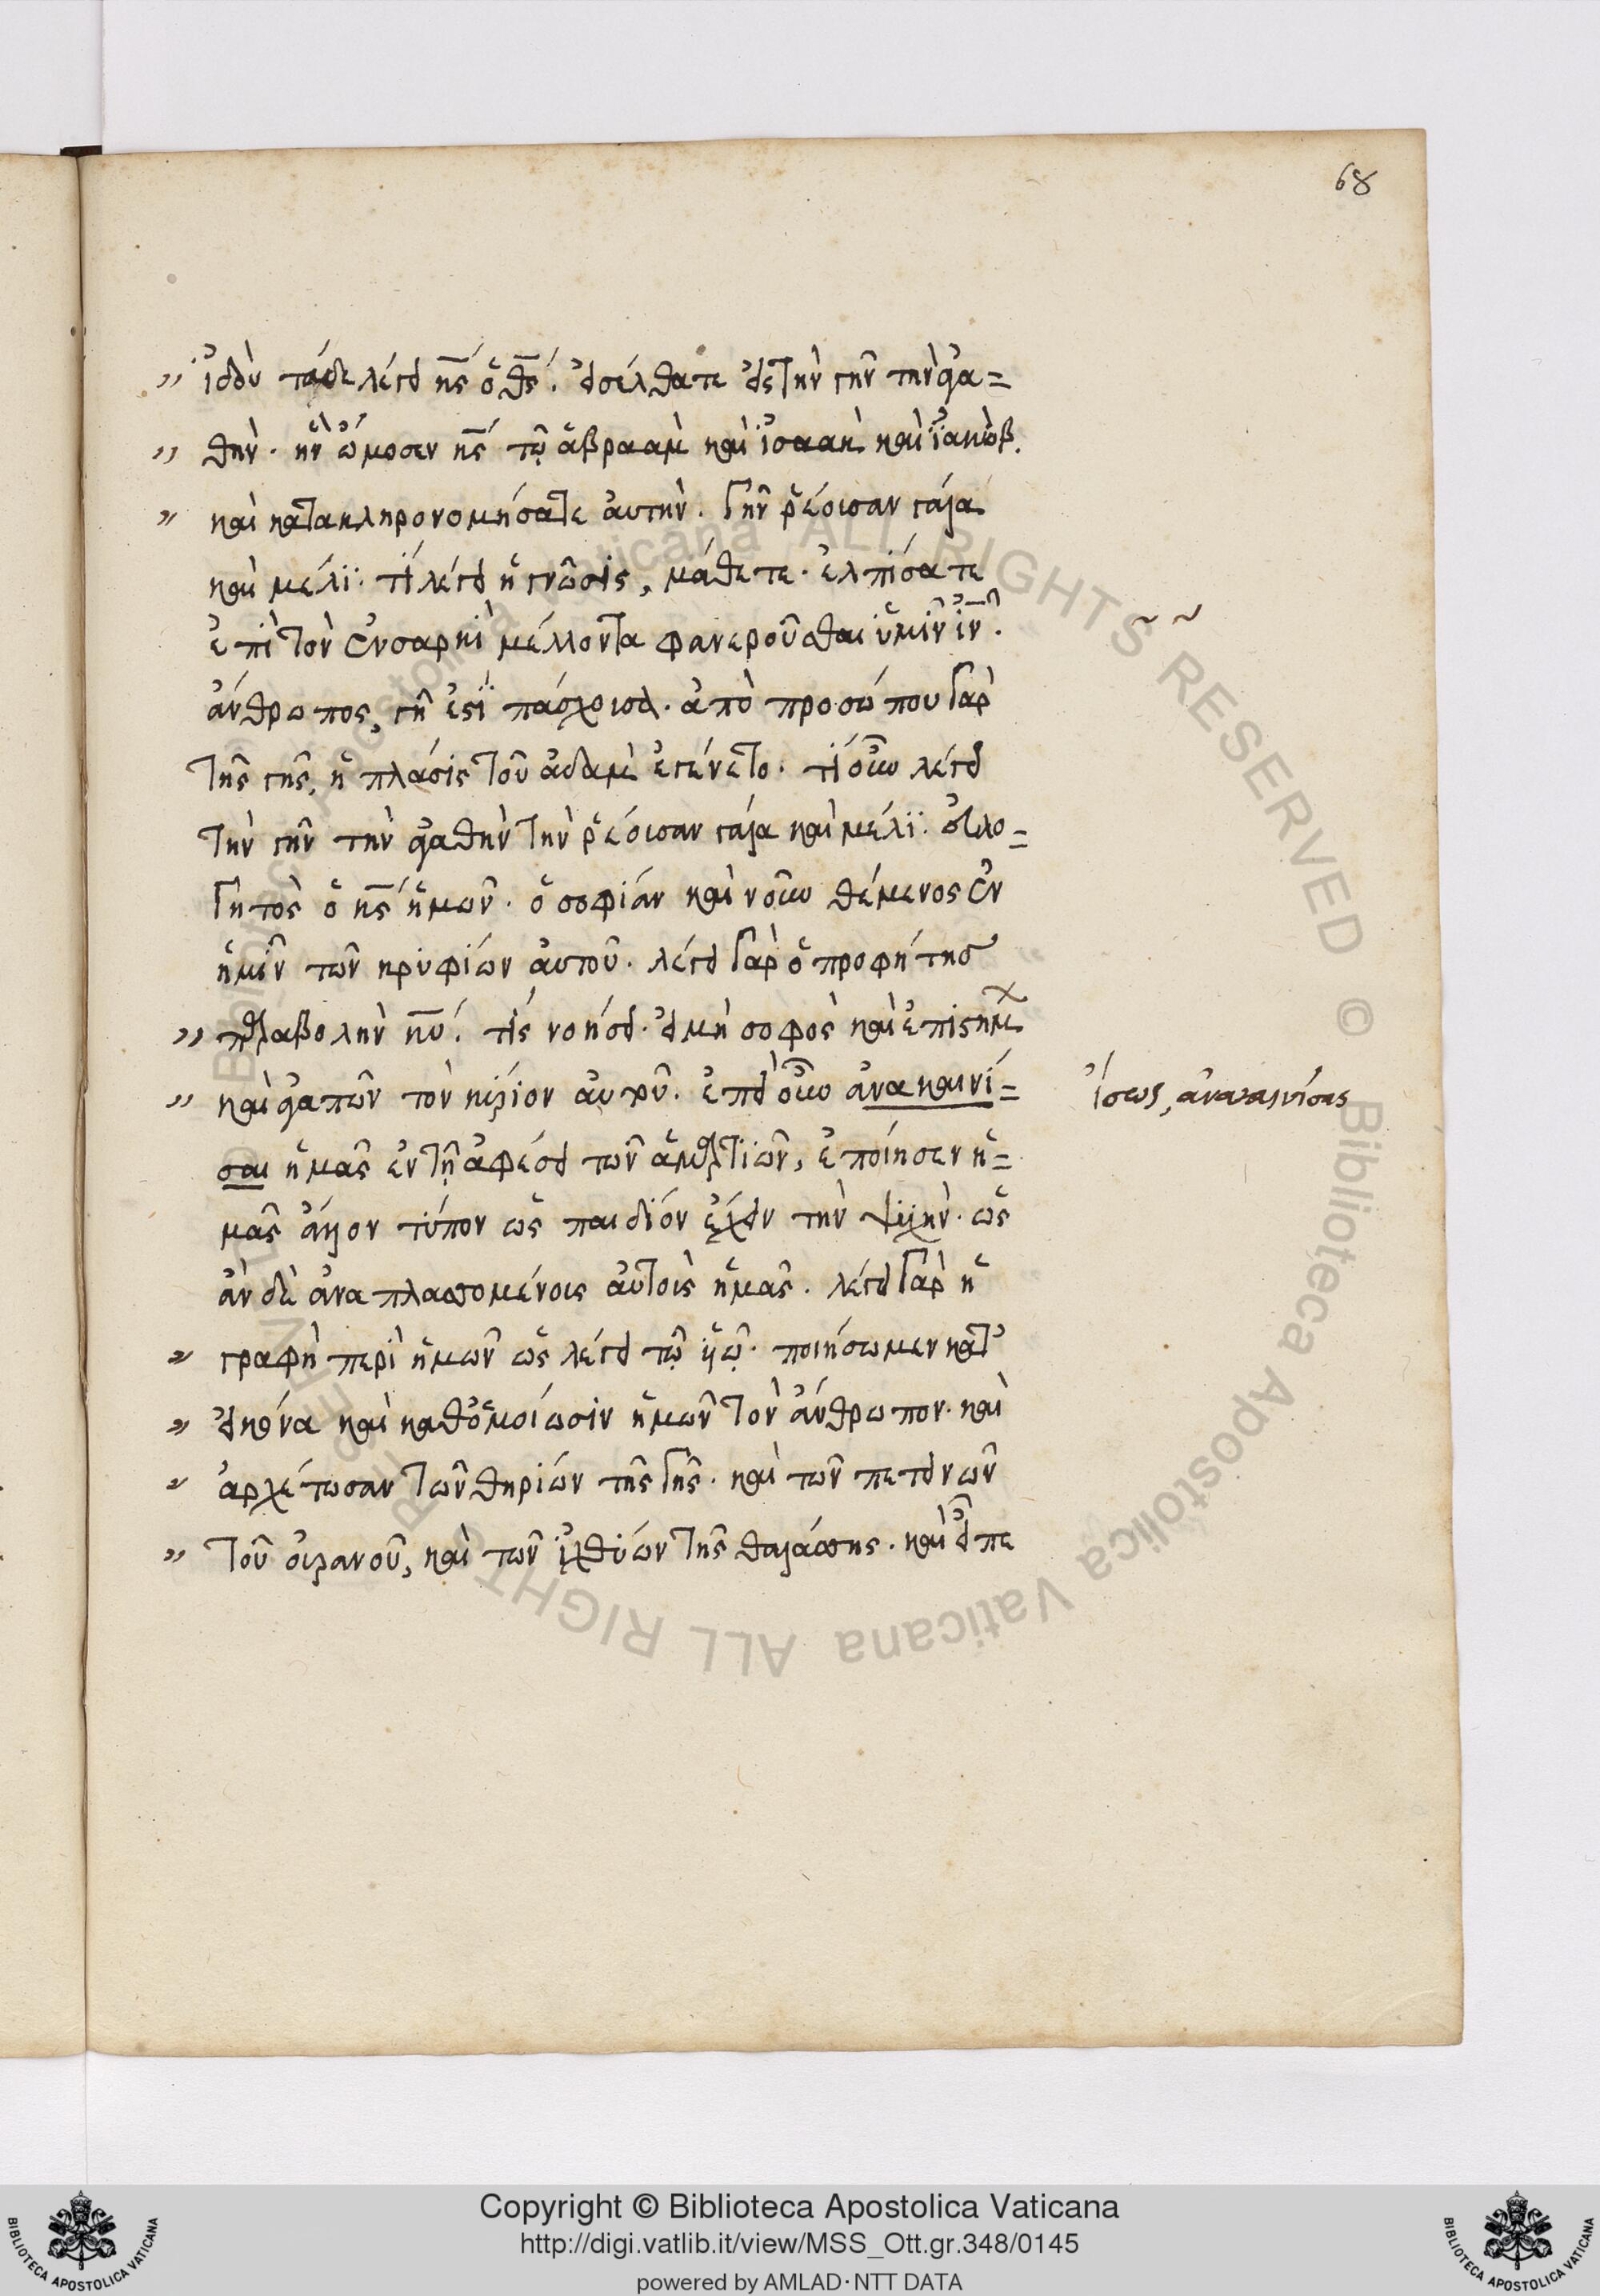 68
,, ἰδοὺ τάδε λέγει κ̅ς̅ ὁ θ̅ς̅. εἰσέλθατε εἰς τὴν γῆν τὴν ἀγα=
,, θὴν. ἣν ὤμοσεν κ̅ς̅ τῷ ἁβραὰμ καὶ ἰσαὰκ καὶ ἰακὼβ.
,, καὶ κατακληρονομήσατε αὐτὴν. γῆν ῥέουσαν γάλα
καὶ μέλϊ. τί λέγει ἡ γνῶσις, μάθετε. ἐλπίσατε
ἐπὶ τὸν ἐν σαρκὶ μέλλοντα φανεροῦσθαι ὑμῖν ι̅ν̅.
ἄνθρωπος, γῆ ἐστὶ πάσχουσα. ἀπὸ προσώπου γὰρ
τῆς γῆς, ἡ πλάσις τοῦ ἀδὰμ ἐγένετο. τί οὖν λέγει
τὴν γῆν τὴν ἀγαθὴν τὴν ῥέουσαν γάλα καὶ μέλϊ. εὐλο=
γητὸς ὁ κ̅ς̅ ἡμῶν. ὁ σοφίαν καὶ νοῦν θέμενος ἐν
ἡμῖν τῶν κρυφίων αὐτοῦ. λέγει γὰρ ὁ προφήτης
,, παραβολὴν κ̅υ̅. τίς νοήσει. εἰ μὴ σοφὸς καὶ ἐπιστήμ
,, καὶ ἀγαπῶν τὸν κύριον αὐτοῦ. ἐπεὶ οὖν ἀνακαινί=
σαι ἡμᾶς ἐν τῇ ἀφέσει τῶν ἁμαρτιῶν, ἐποίησεν ἡ=
μᾶς ἄλλον τύπον ὡς παιδίον ἔχειν τὴν ψυχὴν. ὡς
ἂν δὲ ἀναπλασσομένους αὐτοὺς ἡμᾶς. λέγει γὰρ ἡ
,, γραφὴ περὶ ἡμῶν ὡς λέγει τῷ υἱῷ. ποιήσωμεν κατ᾽
,, εἰκόνα καὶ καθ᾽ ὁμοίωσιν ἡμῶν τὸν ἄνθρωπον. καὶ
,, ἀρχέτωσαν τῶν θηρίων τῆς γῆς. καὶ τῶν πετεινῶν
,, τοῦ οὐρανοῦ, καὶ τῶν ἰχθύων τῆς θαλάσσης. καὶ εἶπε
ἴσως, ἀνακαινίσας
Copyright © Biblioteca Apostolica Vaticana
http://digi.vatlib.it/view/MSS_Ott.gr.348/0145
powered by AMLAD·NTT DATA
BIBLIOTECA APOSTOLICA VATICANA
BIBLIOTECA APOSTOLICA VATICANA
© Biblioteca Apostolica Vaticana ALL RIGHTS RESERVED © Biblioteca Apostolica Vaticana ALL RIGHTS RESERVED